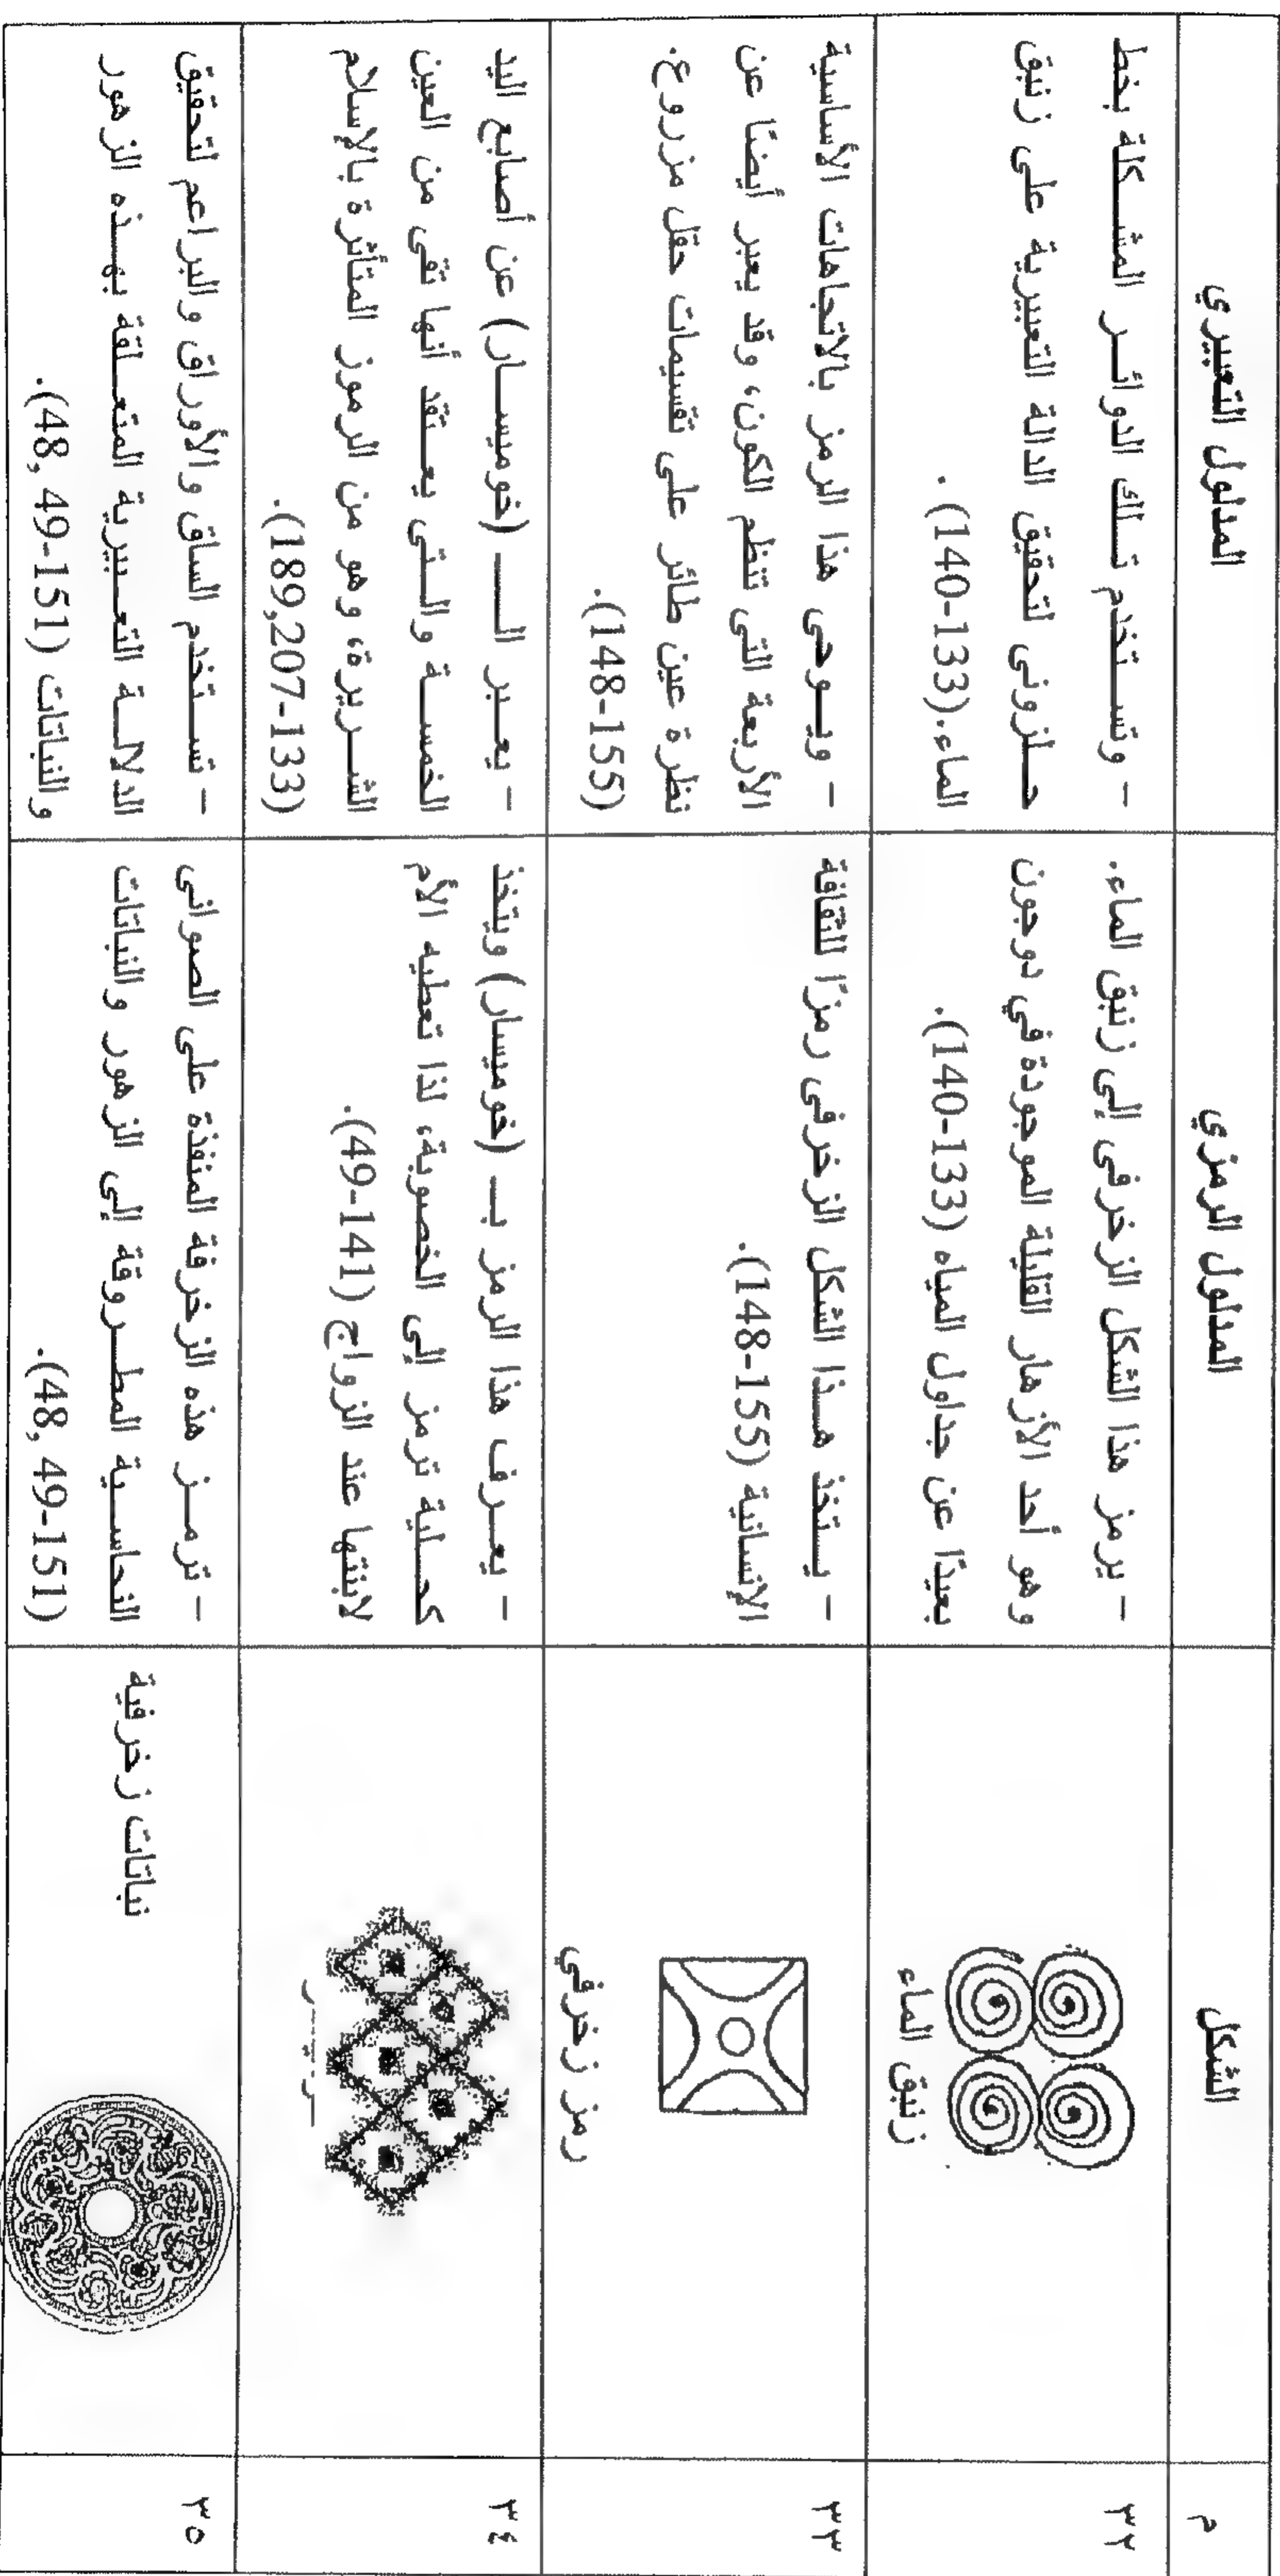 م
الشكل
المدلول الرمزي
المدلول التعبيري
٣٢
زنبق الماء
– يرمز هذا الشكل الزخرفى إلى زنبق الماء.
وهو أحد الأزهار القليلة الموجودة في دوجون
بعيدًا عن جداول المياه (133-140).
– وتستخدم تلك الدوائر المشكلة بخط
حلزونى لتحقيق الدالة التعبيرية على زنبق
الماء.(133-140).
٣٣
رمز زخرفي
– يستخذ هذا الشكل الزخرفى رمزًا للثقافة
الإنسانية (155-148).
– ويوحى هذا الرمز بالاتجاهات الأساسية
الأربعة التى تنظم الكون، وقد يعبر أيضًا عن
نظرة عين طائر على تقسيمات حقل مزروع.
(155-148).
٣٤
– يعرف هذا الرمز بـ (خوميسار) ويتخذ
كحلية ترمز إلى الخصوبة، لذا تعطيه الأم
لابنتها عند الزواج (141-49).
– يعبر الـ (خوميسار) عن أصابع اليد
الخمسة والتي يعتقد أنها تقى من العين
الشريرة، وهو من الرموز المتأثرة بالإسلام
(133-189,207).
٣٥
نباتات زخرفية
– ترمز هذه الزخرفة المنفذة على الصوانى
النحاسية المطروقة إلى الزهور والنباتات
(151-49 ,48).
– تستخدم الساق والأوراق والبراعم لتحقيق
الدلالة التعبيرية المتعلقة بهذه الزهور
والنباتات (151-49 ,48).